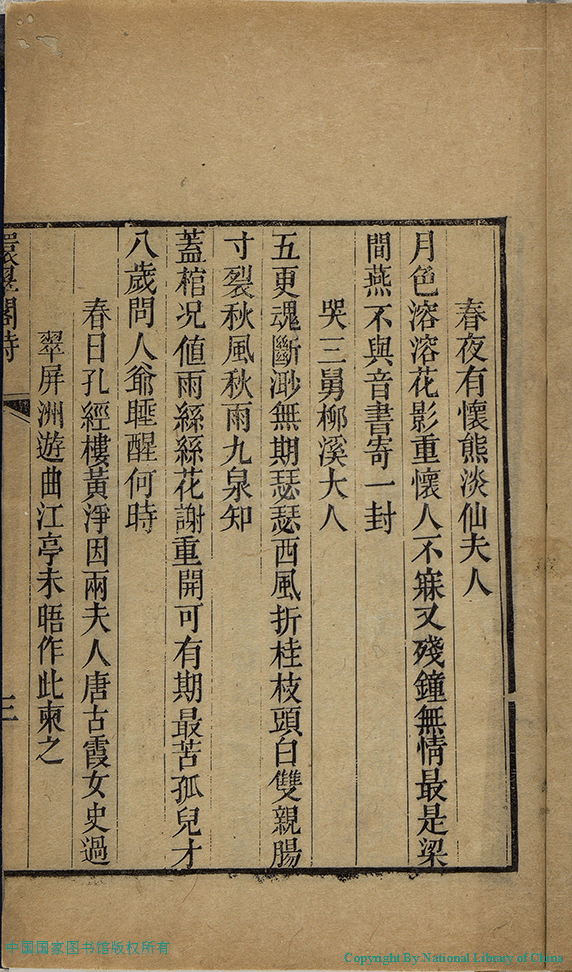 春夜有懷熊淡仙夫人
月色溶溶花影重懷人不寐又殘鐘無情最是梁
間燕不與音書寄一封
哭三舅柳溪大人
五更魂斷渺無期瑟瑟西風折桂枝頭白雙親腸
寸裂秋風秋雨九泉知
蓋棺况値雨絲絲花謝重開可有期最苦孤兒才
八歲問人爺睡醒何時
春日孔經樓黃淨因兩夫人唐古霞女史過
翠屏洲遊曲江亭未晤作此柬之
環翠閣詩
三
中国国家图书馆版权所有
Copyright By National Library of China